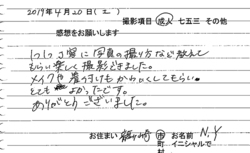 2019年4月20日(土)
撮影項目 成人 七五三 その他
感想をお願いします
1つ1つ丁寧に写真の撮り方など教えて
もらい楽しく撮影できました。
メイクや着つけもかわいくしてもらい。
とても よかったです。
ありがとうございました。
お住まい 市 町 村 お名前 イニシャルで N.Y